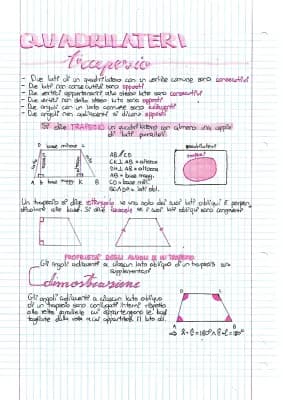 QUADRILATERI
trapezio
- Due lati di un quadrilatero con un vertice comune sono consecutivi
- Due lati non consecutivi sono opposti
- Due vertici appartenenti allo stesso lato sono consecutivi
- Due vertici non dello stesso lato sono opposti
- Due angoli con un lato comune sono
- Due angoli non adiacenti si dicono opposti
Si dice TRAPEZIO un quadrilatero con almeno una coppia
di lati paralleli
D base minore C
A h base magg. K B
AB//CD
CK⊥AB = altezza
DH⊥AB = altezza
AB = base magg.
CD = base min.
BC∧DA = lati obl.
quadrilateri
trapezi
Un trapezio si dice rettangolo se uno solo dei suoi lati obliqui è perpen
dicolare alle basi. Si dice isoscele se i suoi lati obliqui sono congruenti
PROPRIETÀ DEGLI ANGOLI DI UN TRAPEZIO
Gli angoli adiacenti a ciascun lato obliquo di un trapezio sono
supplementari
dimostrazione
Gli angoli adiacenti a ciascun lato obliquo
di un trapezio sono coniugati interni rispetto
alle rette parallele cui appartengono le basi
tagliate dalla retta a cui appartiene il lato obl.
D C
A B